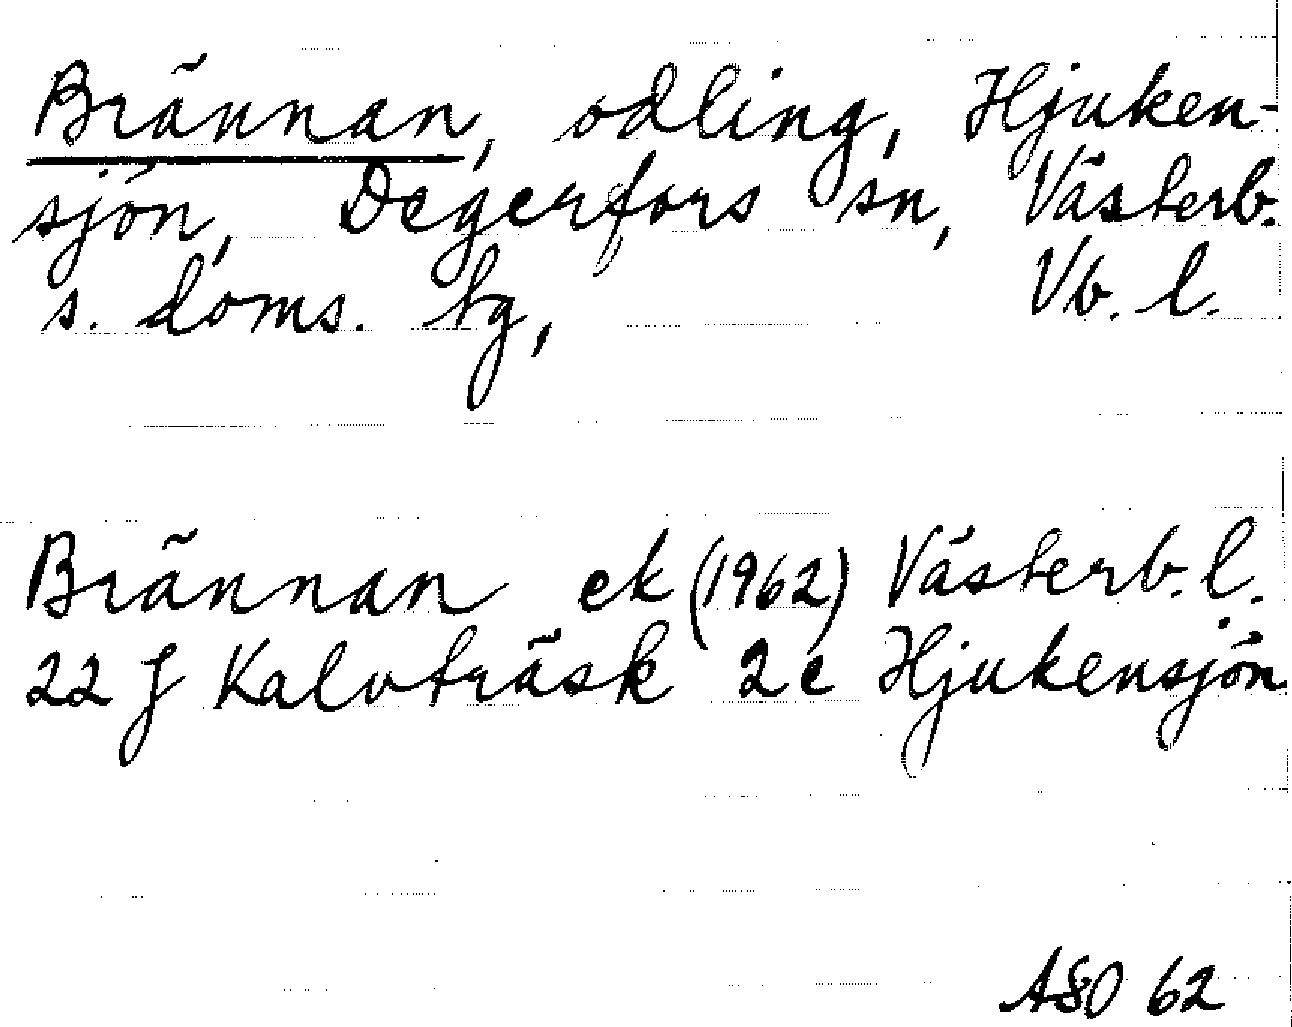 Brännan, odling, Hjuken-
sjön, Degerfors sn, Västerb.
s. doms. tg, Vb. l.
Brännan ek (1962) Västerb. l.
22 J Kalvträsk 2 e Hjukensjön
ASO 62